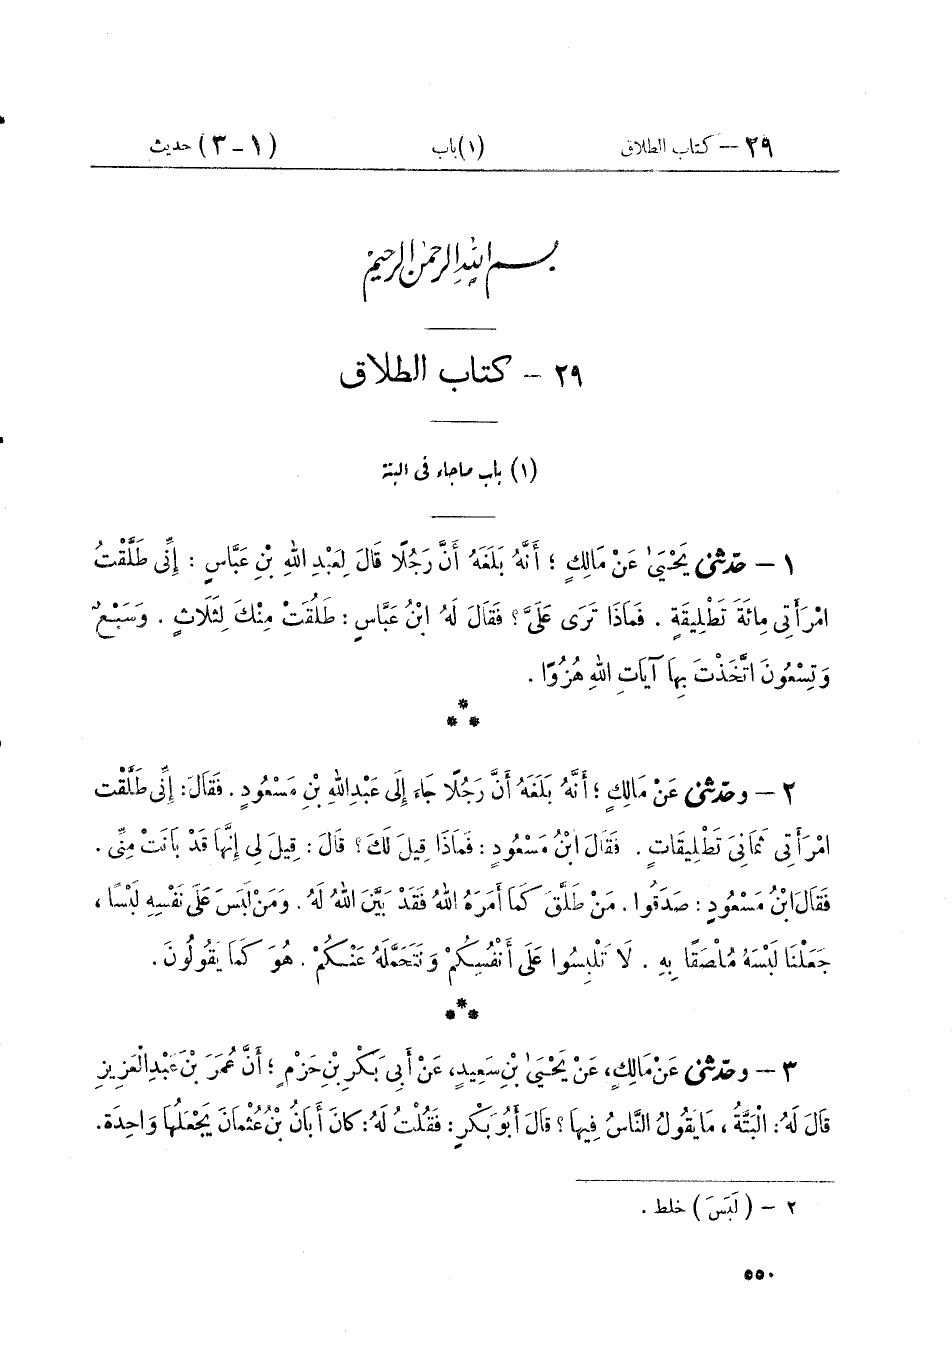 ٢٩ – كتاب الطلاق (١) باب (١ – ٣) حديث
بسم الله الرحمن الرحيم
٢٩ – كتاب الطلاق
(١) باب ماجاء فى البتة
١ – حدّثنى يَحْيَىٰ عَنْ مَالِكٍ ؛ أَنَّهُ بَلَغَهُ أَنَّ رَجُلًا قَالَ لِعَبْدِ اللهِ بْنِ عَبَّاسٍ : إِنِّى طَلَّقْتُ
امْرَأَتِى مِائَةَ تَطْلِيقَةٍ . فَمَاذَا تَرَى عَلَىَّ ؟ فَقَالَ لَهُ ابْنُ عَبَّاسٍ : طَلُقَتْ مِنْكَ لِثَلَاثٍ . وَسَبْعٌ
وَتِسْعُونَ اتَّخَذْتَ بِهَا آيَاتِ اللهِ هُزُوًا .
٢ – وحدّثنى عَنْ مَالِكٍ ؛ أَنَّهُ بَلَغَهُ أَنَّ رَجُلًا جَاءَ إِلَى عَبْدِ اللهِ بْنِ مَسْعُودٍ . فَقَالَ : إِنِّى طَلَّقْتُ
امْرَأَتِى ثَمَانِىَ تَطْلِيقَاتٍ . فَقَالَ ابْنُ مَسْعُودٍ : فَمَاذَا قِيلَ لَكَ ؟ قَالَ : قِيلَ لِى إِنَّهَا قَدْ بَانَتْ مِنِّى .
فَقَالَ ابْنُ مَسْعُودٍ : صَدَقُوا . مَنْ طَلَّقَ كَمَا أَمَرَهُ اللهُ فَقَدْ بَيَّنَ اللهُ لَهُ . وَمَنْ لَبَسَ عَلَى نَفْسِهِ لَبْسًا ،
جَعَلْنَا لَبْسَهُ مُلْصَقًا بِهِ . لَا تَلْبِسُوا عَلَى أَنْفُسِكُمْ وَنَتَحَمَّلَهُ عَنْكُمْ . هُوَ كَمَا يَقُولُونَ .
٣ – وحدّثنى عَنْ مَالِكٍ، عَنْ يَحْيَىٰ بْنِ سَعِيدٍ، عَنْ أَبِى بَكْرِ بْنِ حَزْمٍ ؛ أَنَّ عُمَرَ بْنَ عَبْدِ الْعَزِيزِ
قَالَ لَهُ : الْبَتَّةُ ، مَا يَقُولُ النَّاسُ فِيهَا ؟ قَالَ أَبُو بَكْرٍ : فَقُلْتُ لَهُ : كَانَ أَبَانُ بْنُ عُثْمَانَ يَجْعَلُهَا وَاحِدَةً.
٢ – (لَبَسَ) خلط .
٥٥٠